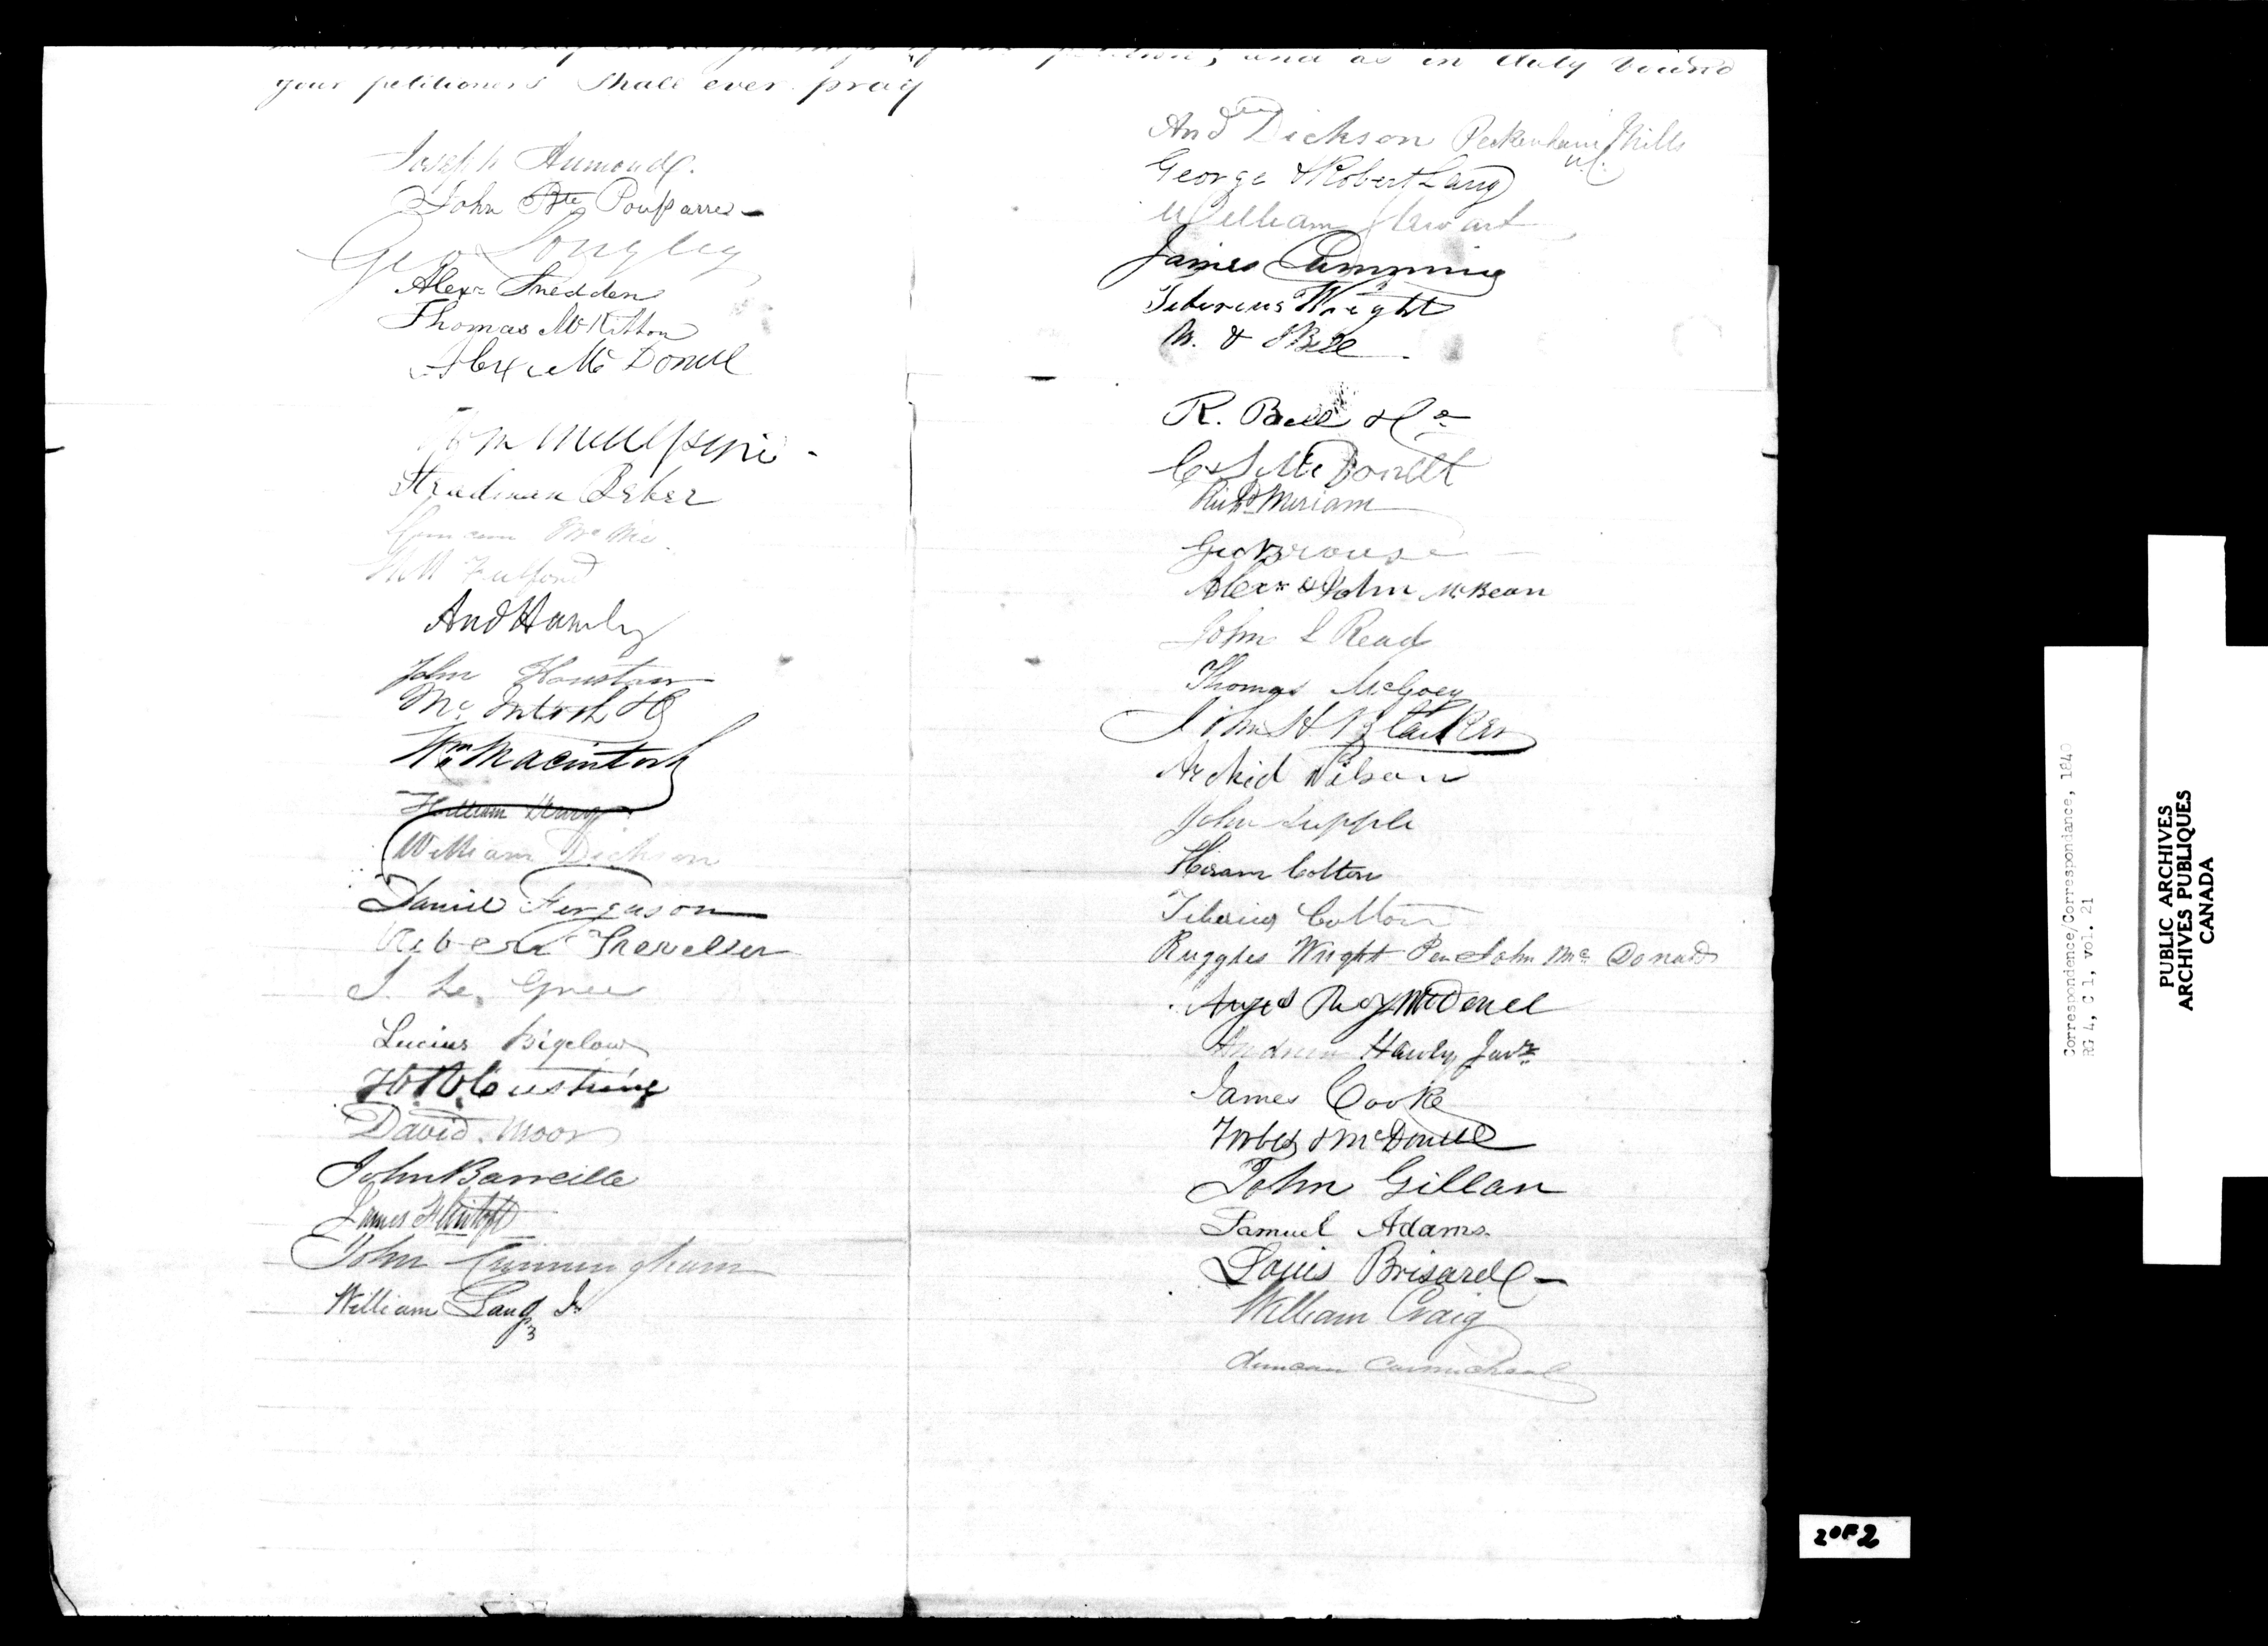 petition, and as in duty bound
your petitioners shall ever pray
Joseph Aumond
John Bte Poupарrés
Geo Longley
Alexr Snedden
Thomas McKitton
Alexr McDonell
Steadman Baker
Duncan
Fulford
And Hamly
John Houston
McIntosh
Wm Macintosh
William
William Dickson
Daniel Ferguson
Robert Shereller
J. Le. Gree
Lucius Bigelow
Cushing
David Moor
John Bareille
James
John Cunningham
William Lang Jr
And Dickson Packenham Mills
U.C.
George & Robert Lang
William Stewart
James Cumming
Tiberius Wright
W. & J Bell
R. Bell & Co
McDonell
Richd Meriam
Geo Brouse
Alexr & John McBean
John L Read
Thomas McGoey
John H
Archid Wilson
John Supple
Hiram Colton
Tiberius Colton
Ruggles Wright Per John McDonald
Angus Roy McDonell
Andrew Hamly Junr
James Cooke
Forbes & McDonell
John Gillan
Samuel Adams
Louis Brisard
William Craig
duncan Carmichael
Correspondence/Correspondance, 1840
RG 4, C 1, vol. 21
PUBLIC ARCHIVES
ARCHIVES PUBLIQUES
CANADA
2 OF 2